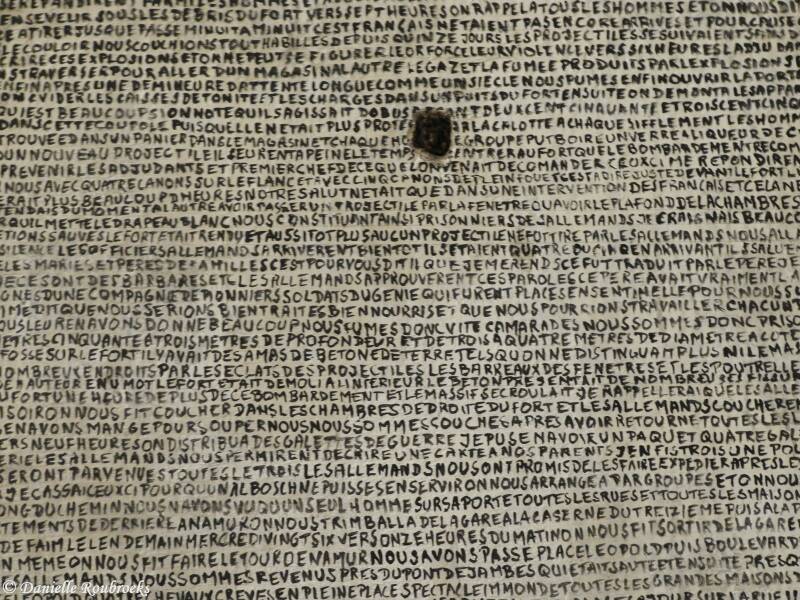 SENVEUR SOUS LES DEBRIS DU FORT VERS SEPT HEURES ON RAPPELA TOUS LES HOMMES ET ON NOUS DI
E ATIRER JUSQUE PASSE MINUIT A MINUIT CEST FRANÇAIS NETAIENT PAS ENCORE ARRIVES ET POUR CAUSE
LE COULOIR NOUS COUCHIONS TOUT HABILLES DEPUIS QUINZE JOURS LES PROJECTILES SE SUIVAIENT
RIRE CES EXPLOSIONS ET ON NE PEUT SE FIGURER LEOR FORCE LEUR VIOLENCE VERS SIX HEURES LADJUDAN
NS TRAVERSER POUR ALLER DUN MAGASIN A LAUTRE LE GAZ ET LA FUMEE PRODUITS PAR LEXPLOSION
ENFIN APRES UNE DEMI HEURE DATTENTE LONGUE COMME UN SIECLE NOUS FUMES ENFIN OUVRIR LA PORTE
ON CVIDER LES CAISSES DE TONITE ET LES CHARGES DANS UN PUITS DU FORT ENSUITE ON DEMONTA LES APPAR
QUI EST BEAUCOUP SI ON NOTE QUIL SAGISSAIT DOBUS NT DEUX CENT CINQUANTE ET TROIS CENT CINQ
DANS CETTE COUPOLE PUISQUELLE NETAIT PLUS PROTE AR LA FLOTTE A CHAQUE SIFFLEMENT LES HOMM
TROUVEE DANS UN PANIER DANS LE MAGASIN ET CHAQUE HO GROUPE PUT BOIRE UN VERRE A LIQUEUR DE C
UN NOUVEAU PROJECTILE IL LEUR ENT A PEINE LE TEMPS ENTRER AU FORT QUE LE BOMBARDEMENT RECOM
PREVENIR LES ADJUDANTS ET PREMIER CHEF DE CE QUE LON VENAIT DE COMANDER CROUXCIME REPONDIREN
NOUS AVEC QUATRE CANONS SUR LE FLANC ET AVEC CINQ CANONS DE PLEIN FOUET CEST A DIRE JUSTE DEVANT LE FORT LU
ERAIT PLUS BEAUCOUP DHEURES NOTRE SALUT NETAIT QUE DANS UNE INTERVENTION DES FRANCAIS ET CELA NE
TENDAIS DU MOMENT A LAUTRE A VOIR PASSER UN PROJECTILE PAR LA FENETRE OU A VOIR LE PLAFOND DE LA CHAMBRE S
R QUIL METTE LE DRAPEAU BLANC NOUS CONSTITUANT AINSI PRISONNIERS DES ALLEMANDS JE CRAIGNAIS BEAUCO
ETIONS SAUVES LE FORT ETAIT RENDU ET AUSSITOT PLUS AUCUN PROJECTILE NE FOT TIRE PAR LES ALLEMANDS NOUS ALLA
SILENCE LES OFFICIERS ALLEMANDS ARRIVERENT BIENTOT ILS ETAIENT QUATRE OU CINQ EN ARRIVANT ILS SALUE
LES MARIES ET PERES DE FAMILLES CEST POUR VOUS DIT IL QUE JE ME REND S CE FUT TRADUIT PAR LE PERE JE
IECE SONT DES BARBARES ET LES ALLEMANDS APPROUVERENT CES PAROLES CE PERE AVAIT VRAIMENT LA
GNES DUNE COMPAGNIE DE PIONNIERS SOLDATS DU GENIE QUI FURENT PLACES EN SENTINELLE POUR NOUS SU
IME DIT QUE NOUS SERIONS BIEN TRAITES BIEN NOURRIS ET QUE NOUS POURRIONS TRAVAILLER CHACUN
OUS LEUR EN AVONS DONNE BEAUCOUP NOUS FUMES DONC VITE CAMARADES NOUS SOMMES DONC PRISO
METRES CINQUANTE A TROIS METRES DE PROFONDEUR ET DE TROIS A QUATRE METRES DE DIAMETRE A COTE
FOSSE SUR LE FORT IL Y AVAIT DES AMAS DE BETON ET DE TERRE TELS QUON NE DISTINGUAM PLUS NI LE MAS
OMBREUX ENDROITS PAR LES ECLATS DES PROJECTILES LES BARREAUX DES FENETRES ET LES POUTRELLE
DE HAUTEUR EN U MOT LE FORT ETAIT DEMOLI A LINTERIEUR LE BETON PRESENTAIT DE NOMBREUSES FISSU
UFORT UNE HEURE DE PLUS DE CE BOMBARDEMENT ET LE MASSIF SECROULAIT JE RAPPELLERAI QUE LES ALLE
SOIR ON NOUS FIT COUCHER DANS LES CHAMBRES DE DROITE DU FORT ET LES ALLEMANDS COUCHEREN
EN AVONS MANGE POUR SOUPER NOUS NOUS SOMMES COUCHES APRES AVOIR RETOURNE TOUTES LES
ERS NEUF HEURES ON DISTRIBUA DES GALETTES DE GUERRE JE PUS EN AVOIR UN PAQUET QUATRE GAL
ERIE LES ALLEMANDS NOUS PERMIRENT DECRIRE UNE CARTE A NOS PARENTS JEN FIS TROIS UNE POU
SERONT PARVENUES TOUTES LE TROIS LES ALLEMANDS NOUS ONT PROMIS DE LES FAIRE EXPEDIER APRES LE
JE CASSAI CEUX CI POUR QUUN ALBOSCH NE PUISSE SEN SERVIR ON NOUS ARRANGEA PAR GROUPES ET ON NOU
ONG DU CHEMIN NOUS NAVONS VU QUUN SEUL HOMME SUR SA PORTE TOUTES LES RUES ET TOUTES LES MAISON
TEMENTS DE DERRIERE A NAMUR ON NOUS TRIMBALLA DE LA GARE A LA CASERNE DU TREIZIEME PUIS A LA P
DE FAIM LE LENDEMAIN MERCREDI VINGT SIX VERS ONZE HEURES DU MATIN ON NOUS FIT SORTIR DE LA GARE
N MEME ON NOUS FIT FAIRE LE TOUR DE NAMUR NOUS AVONS PASSE PLACE LEOPOLD PUIS BOULEVARD
OUS SOMMES REVENUS PRES DU PONT DE JAMBES QUI ETAIT SAUTE ET ENSUITE PRESQ
HEVAUX CREVES EN PLEINE PLACE SPECTACLE IMMONDE TOUTES LES GRANDES MAISONS D
© Danielle Roubroeks